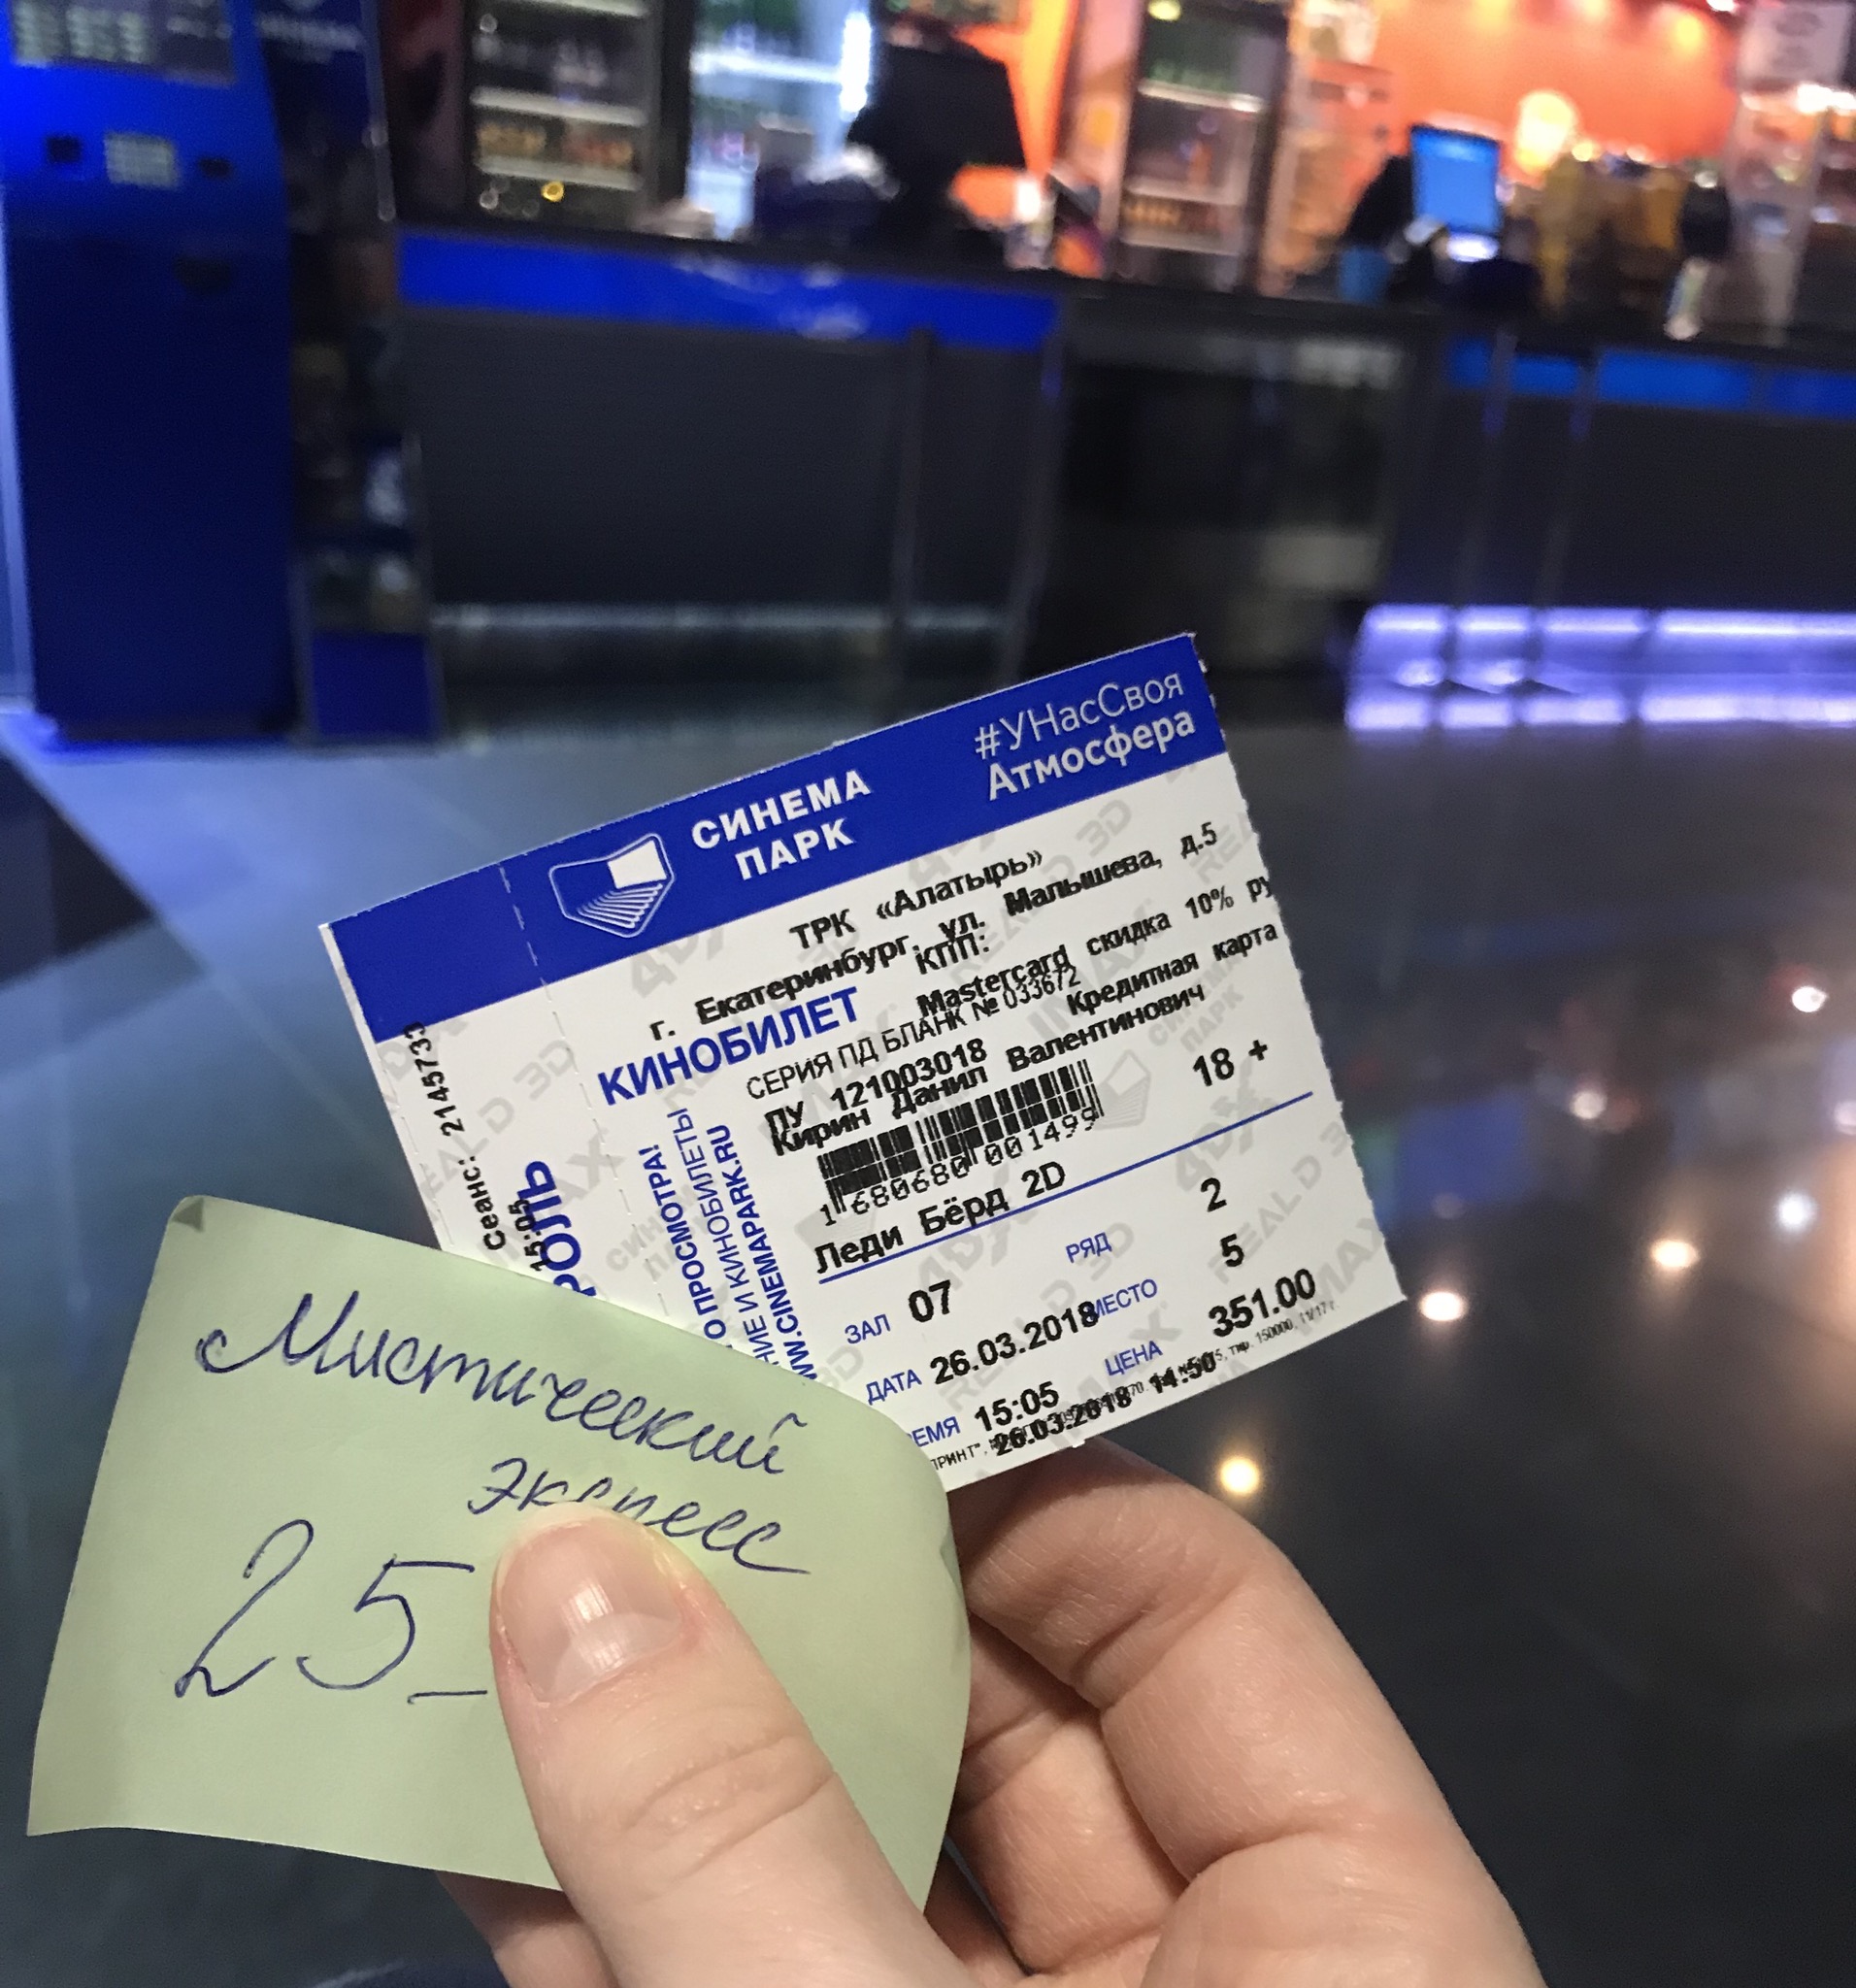 СИНЕМА
ПАРК
#УНасСвоя
Атмосфера
ТРК «Алатырь»
г. Екатеринбург, ул. Малышева, д.5
КПП:
КИНОБИЛЕТ
Mastercard скидка 10% ру
СЕРИЯ ПД БЛАНК № 033672
Кредитная карта
ПУ 121003018
Кирин Данил Валентинович
18 +
1 680680 001499
Леди Бёрд 2D
ЗАЛ 07
РЯД 2
ДАТА 26.03.2018
МЕСТО 5
ЕМЯ 15:05
ЦЕНА 351.00
26.03.2018 14:50
Сеанс: 21457333
15:05
РОЛЬ
О ПРОСМОТРА!
НИЕ И КИНОБИЛЕТЫ
WW.CINEMAPARK.RU
Мистический
экспесс
25_